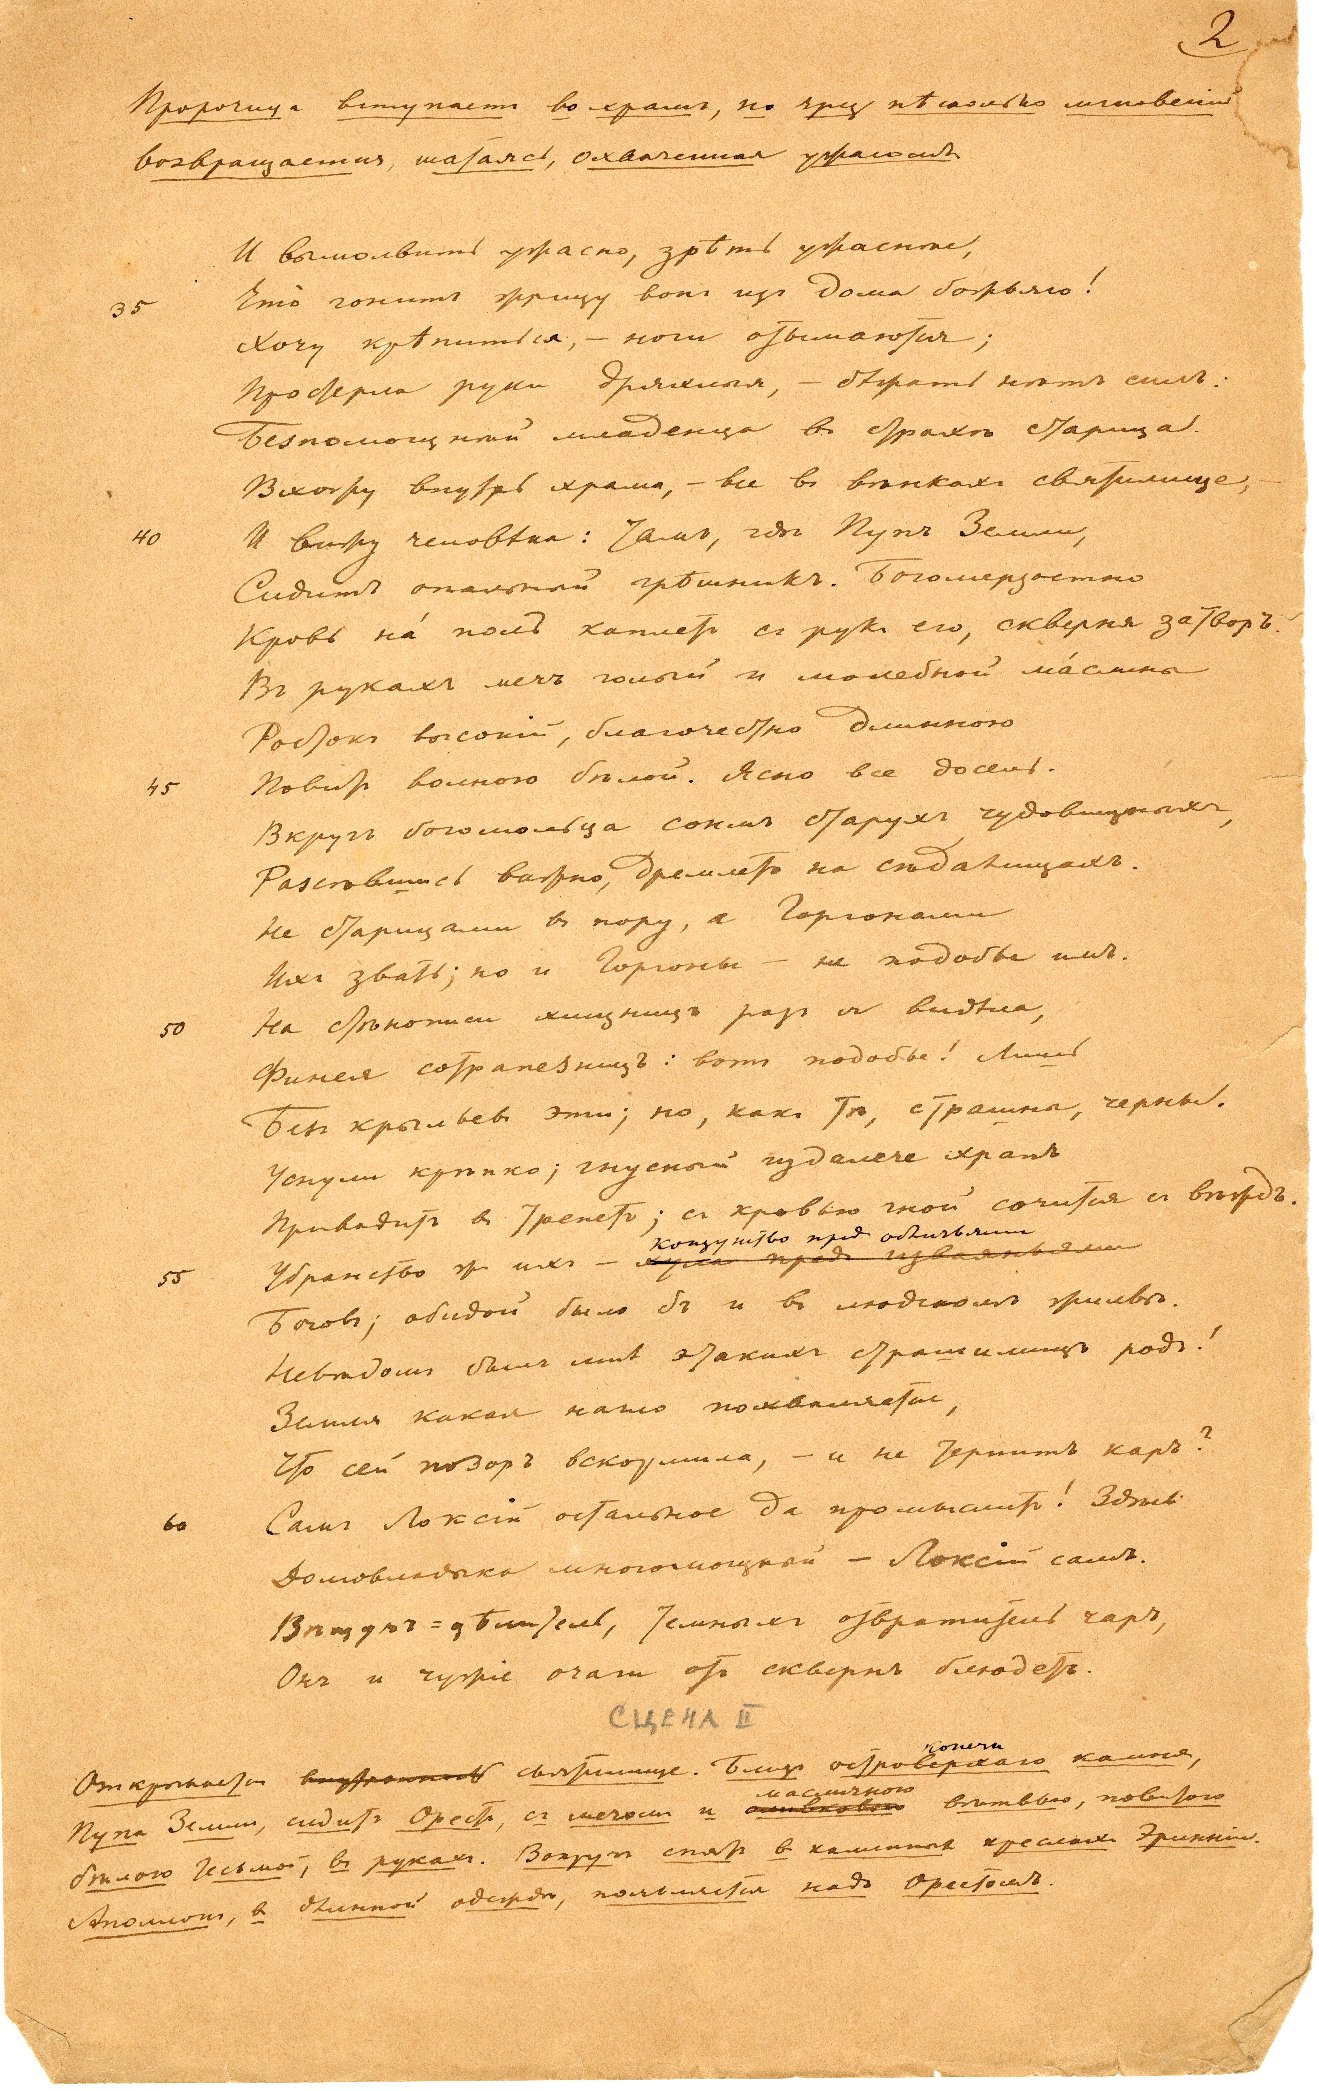 2
Пророчица вступаетъ во храмъ, но чрезъ нѣсколько мгновеній
возвращается, шатаясь, охваченная ужасомъ.
И вымолвить ужасно, зрѣть ужасное,
35 Что́ гонитъ жрицу вонъ изъ дома божьяго!
Хочу крѣпиться, – ноги отымаются;
Простерла руки дряхлыя, – бѣжать нѣтъ силъ:
Безпомощнѣй младенца въ страхѣ старица.
Вхожу внутрь храма, – все въ вѣнкахъ святилище, –
40 И вижу человѣка: тамъ, гдѣ Пупъ Земли,
Сидитъ опальный грѣшникъ. Богомерзостно
Кровь на́ полъ каплетъ съ рукъ его, скверня затворъ.
Въ рукахъ мечъ голый и молебной ма́слины
Ростокъ высокій, благочестно длинною
45 Повитъ волною бѣлой. Ясно все досель.
Вкругъ богомольца сонмъ старухъ чудовищныхъ,
Разсѣвшись важно, дремлетъ на сѣдалищахъ.
Не старицами въ пору, а Горгонами
Ихъ звать; но и Горгоны – не подобье имъ.
50 На стѣнописи хищницъ разъ я видѣла,
Финея сотрапезницъ: вотъ подобье! Лишь
Безъ крыльевъ эти; но, какъ тѣ, страшны, черны.
Уснули крѣпко; гнусный издалече храпъ
Приводитъ въ трепетъ; съ кровью гной сочится съ вѣждъ.
кощунство предъ обличьями
55 Убранство жъ ихъ – хула предъ изваяньями
Боговъ; обидой было бъ и въ людскомъ жильѣ.
Невѣдомъ былъ мнѣ этакихъ страшилищъ родъ!
Земля какая нагло похваляется,
Что сей позоръ вскормила, – и не терпитъ каръ?
60 Самъ Локсій остальное да промыслитъ! Здѣсь
Домовладыка многомощный – Локсій самъ.
Вѣщунъ=цѣлитель, темныхъ отвратитель чаръ,
Онъ и чужіе очаги отъ сквернъ блюдетъ.
СЦЕНА II
Открывается внутренность святилище. Близъ островерхаго камня,
масличною
Пупа Земли, сидитъ Орестъ, съ мечомъ и оливковою вѣтвью, повитою
бѣлою тесьмой, въ рукахъ. Вокругъ спятъ въ каменныхъ креслахъ Эринніи.
Аполлонъ, въ длинной одеждѣ, появляется надъ Орестомъ.